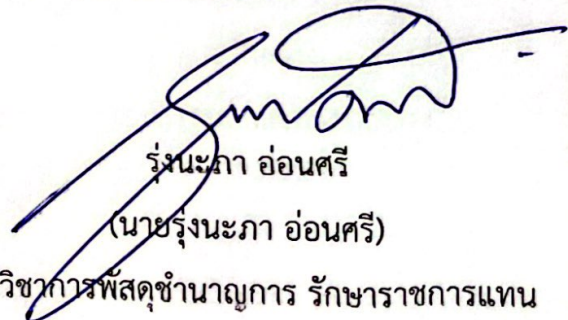 รุ่งนะภา อ่อนศรี
(นายรุ่งนะภา อ่อนศรี)
วิชาการพัสดุชำนาญการ รักษาราชการแทน